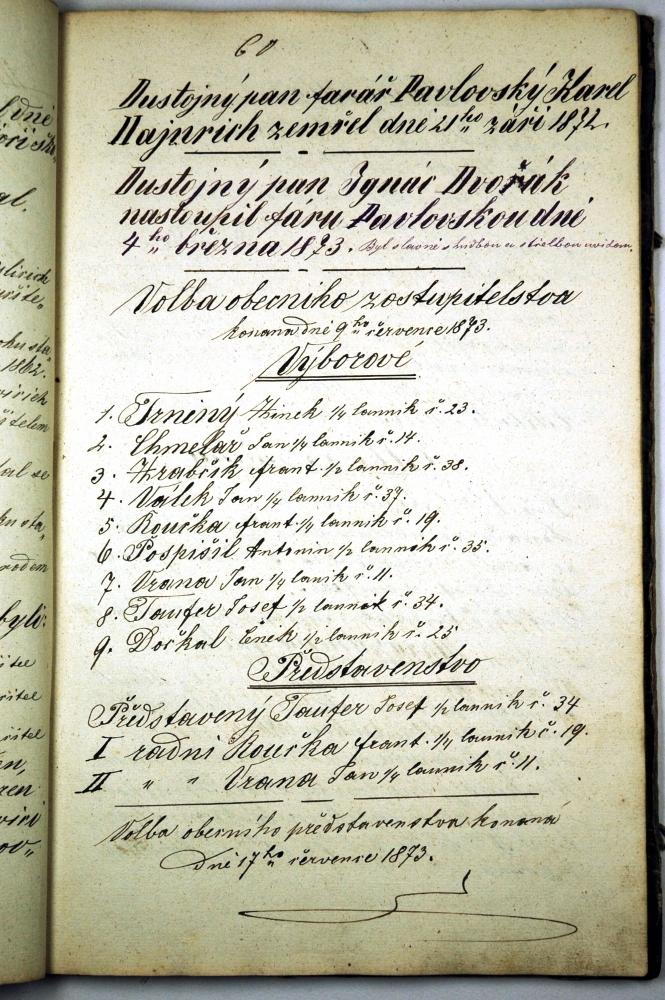 60
Dustojný pan farář Pavlovský Karel
Hajnrich zemřel dne 21ho září 1872.
Dustojný pan Ignác Dvořák
nastoupil fáru Pavlovskou dné
4ho března 1873. Byl slavně s hudbou a střelbou uvídan.
Volba obecního zostupitelstva
konana dné 9ho července 1873.
Výborové
1. Trniný Hinek 1/4 lannik č. 23.
2. Chmelař Jan 1/4 lannik č. 14.
3. Hrabčik frant. 1/2 lannik č. 38.
4. Válek Jan 1/4 lannik č. 37.
5. Koučka frant. 1/4 lannik č. 19.
6. Pospíšil Antonin 1/2 lannik č. 35.
7. Vrana Jan 1/4 lanik č. 11.
8. Taufer Josef 1/2 lannik č. 34.
9. Dočkal Čeněk 1/2 lannik č. 25
Představenstvo
Představený Taufer Josef 1/2 lannik č. 34
I radní Koučka frant. 1/4 lannik č. 19.
II " " Vrana Jan 1/4 lannik č. 11.
Volba obecního představenstva konaná
Dné 17ho července 1873.